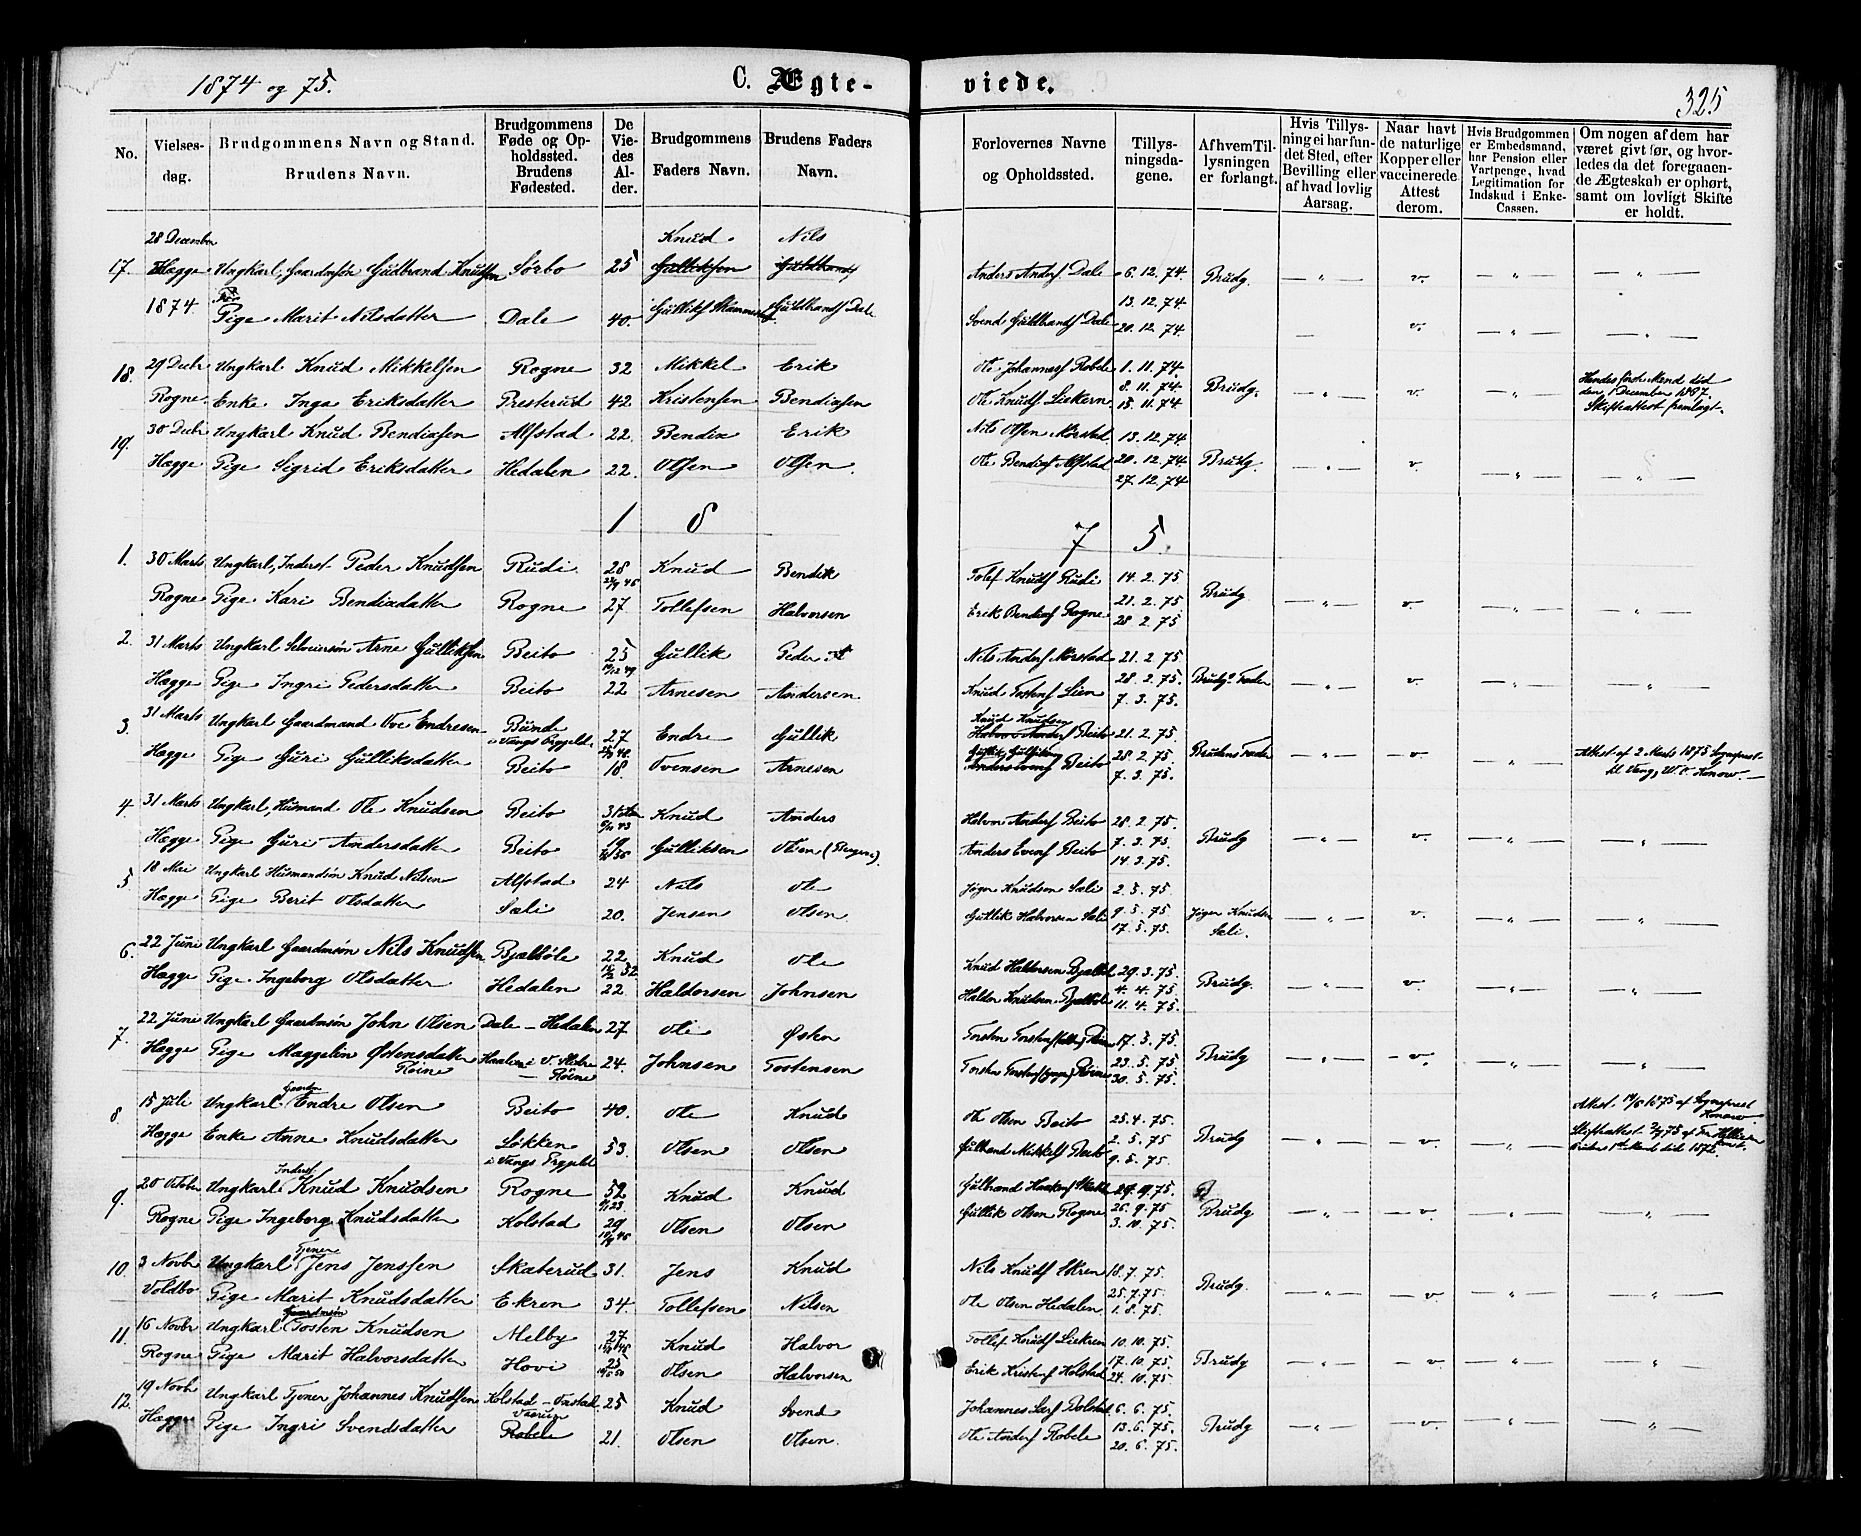 1874 og 75.
C. Ægte-
viede.
325
No.
Vielses-
dag.
Brudgommens Navn og Stand.
Brudens Navn.
Brudgommens
Føde og Op-
holdssted.
Brudens
Fødested.
De
Vie-
des
Al-
der.
Brudgommens
Faders Navn.
Brudens Faders
Navn.
Forlovernes Navne
og Opholdssted.
Tillys-
ningsda-
gene.
Af hvem Til-
lysningen
er forlangt.
Hvis Tillys-
ning ei har fun-
det Sted, efter
Bevilling eller
af hvad lovlig
Aarsag.
Naar havt
de naturlige
Kopper eller
vaccinerede
Attest
derom.
Hvis Brudgommen
er Embedsmand,
har Pension eller
Vartpenge, hvad
Legitimation for
Indskud i Enke-
Cassen.
Om nogen af dem har
været givt før, og hvor-
ledes da det foregaaen-
de Ægteskab er ophørt,
samt om lovligt Skifte
er holdt.
28 December Knud Nils
17. Hægge Ungkarl, Gaardmsøn Gudbrand Knudsen Sørbo 25 Gulliksen Guldbrands Anders Anders Dale 6.12.74. Brudg. — „ — v. — „ — — „ —
1874. Pige Marit Nilsdatter Dale 40. Gulliks Guldbrands Dale 13.12.74.
Svend Guldbrands Dale 20.12.74. — v. — „ — — „ —
18. 29 Decbr Ungkarl Knud Mikkelsen Rogne 32 Mikkel Erik Ole Johanness Robele 1.11.74. Hendes første Mand död
Rogne. Enke Inga Eriksdatter Presterud 42. Kristensen Bendixsen Ole Knuds Liekern 8.11.74 Brudg. — „ — v. — „ — den 1 December 1867.
15.11.74 Skifteattest fremlagt.
19. 30 Decbr Ungkarl Knud Bendixsen Alfstad 22. Bendix Erik Nils Olsen Mörstad 13.12.74.
Hægge Pige Sigrid Eriksdatter Hedalen 22. Olsen Olsen. Ole Bendixs Alfstad 20.12.74. Brudg. — „ — v. — „ — — „ —
27.12.74
1 8 7 5.
1. 30 Marts Ungkarl, Inderst Peder Knudsen Rudi 28 Knud Bendik Tolef Knuds Rudi 14.2.75.
Rogne Pige Kari Bendixdatter Rogne 27 Tollefsen Halvorsen Erik Bendixs Rogne 21.2.75 Brudg — „ — v. — „ — — „ —
28.2.75
2. 31 Marts Ungkarl Arne Gulliksen Beito 25 Gullik Peder Nils Anders Mörstad 21.2.75.
Hægge Pige Ingri Pedersdatter Beito 22 Arnesen Andersen Knud Tostens Lien 28.2.75. Brudgs Fader — „ — v. — „ — — „ —
7.3.75.
3. 31 Marts Ungkarl Gaardmand Ove Endresen Bunde 27 Endre Gullik Knud Knudsen
i Vangs Prgjeld Halvor Anders Beito 21.2.75.
Hægge Pige Guri Gulliksdatter Beito 18. Ovensen Arnesen Beito 28.2.75 Brudens Fader — „ — v. — „ — Attest af 2 Marts 1875 Sognepræst
7.3.75. til Vang, W. C. Konow.
4. 31 Marts Ungkarl, Husmand Ole Knudsen Beito 31 Knud Anders Halvor Anders Beito 28.2.75.
Hægge Pige Guri Andersdatter Beito 19 Gulliksen Olsen Anders Evens Beito 7.3.75. Brudg — „ — v. — „ — — „ —
14.3.75.
5 18 Mai Ungkarl Husmandsön Knud Nilsen Alfstad 24 Nils Ole Jöger Knudsen Sæli 2.5.75.
Hægge Pige Berit Olsdatter Sæli 20. Jensen Olsen Gullik Halvorsen Sæli 9.5.75. Jöger Knudsen — „ — v. — „ — — „ —
17.5.75. Sæli.
6. 22 Juni Ungkarl Gaardmsøn Nils Knudsen Bjelböle 22 Knud Ole Knud Haldorsen Bjelböl 29.3.75.
Hægge Pige Ingeborg Olsdatter Hedalen 22. Haldorsen Johnsen Haldor Knudsen Bjelböle 4.4.75 Brudg. — „ — v. — „ — — „ —
11.4.75.
7. 22 Juni Ungkarl Gaardmsøn John Olsen Dale - Hedalen 27 Ole Østen 17.3.75.
Hægge Pige Maggelin Østensdatter i V. Slidre 24. Johnsen Tostensen 23.5.75 Brudg — „ — v. — „ — — „ —
Röine Röine 30.5.75.
8. 15 Juli Ungkarl Endre Olsen Beito 40. Ole Knud Ole Olsen Beito 25.4.75. Attest 1875 af Sognepræst
Konow
Hægge Enke Anne Knudsdatter Lökken 53. Olsen Olsen Gulbrand Mikkels Beito 2.5.75 Brudg — „ — v. — „ — Skifteattest
i Vangs Prgjeld 9.5.75. 1ste Mand död 1872.
9. 20 October Ungkarl Inderst Knud Knudsen Rogne 52 Knud Knud Gulbrand 19.9.75.
Rogne Pige Ingeborg Knudsdatter Kolstad 29 Olsen Olsen Gullik Olsen Rogne 26.9.75 Brudg — „ — v. — „ — — „ —
3.10.75.
10. 3 Novbr Ungkarl Tjener Jens Jenssen Skaterud 31. Jens Knud Nils Knuds Ekren 18.7.75.
Voldbo Pige Marit Knudsdatter Ekren 34. Tollefsen Nilsen Ole Olsen Hedalen 25.7.75 Brudg. — „ — v. — „ — — „ —
1.8.75.
11. 16 Novbr Ungkarl Gaardmsøn Tosten Knudsen Melby 27 Knud Halvor Tollef Knuds Liekren 10.10.75.
Rogne Pige Marit Halvorsdatter Hovi 25 Olsen Halvorsen Erik Kristens Kolstad 17.10.75. Brudg — „ — v — „ — — „ —
24.10.75
12. 19 Novb. Ungkarl Tjener Johannes Knudsen Kolstad 25 Knud Svend Johannes 6.6.75.
Hægge Pige Ingri Svendsdatter Robele 21. Olsen Olsen. Ole Anders Robele 13.6.75. Brudg — „ — v — „ — — „ —
20.6.75.